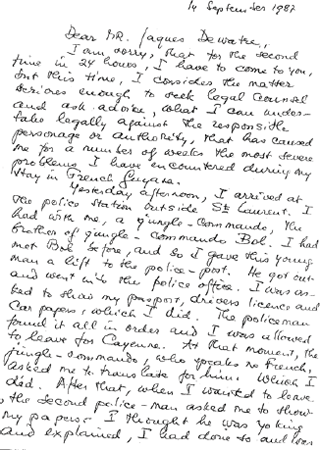 14 September 1987
Dear MR. Jaques Dewatre,
I am sorry, that for the second
time in 24 hours, I have to come to you,
but this time, I consider the matter
serious enough to seek legal counsel
and ask advice, what I can under-
take legally against the responsible
personage or authority, that has caused
me for a number of weeks the most severe
problems I have encountered during my
stay in French Guyana.
Yesterday afternoon, I arrived at
the police station outside St Laurent. I
had with me, a jungle-commando, the
brother of jungle-commando Bol. I had
met Bol before, and so I gave this young
man a lift to the police-post. He got out
and went into the police office. I was as-
ked to show my passport, drivers licence and
car papers, which I did. The policeman
found it all in order and I was allowed
to leave for Cayenne. At that moment, the
jungle-commando, who speaks no French,
asked me to translate for him. Which I
did. After that, when I wanted to leave
the second police-man asked me to show
my papers. I thought he was joking
and explained, I had done so and